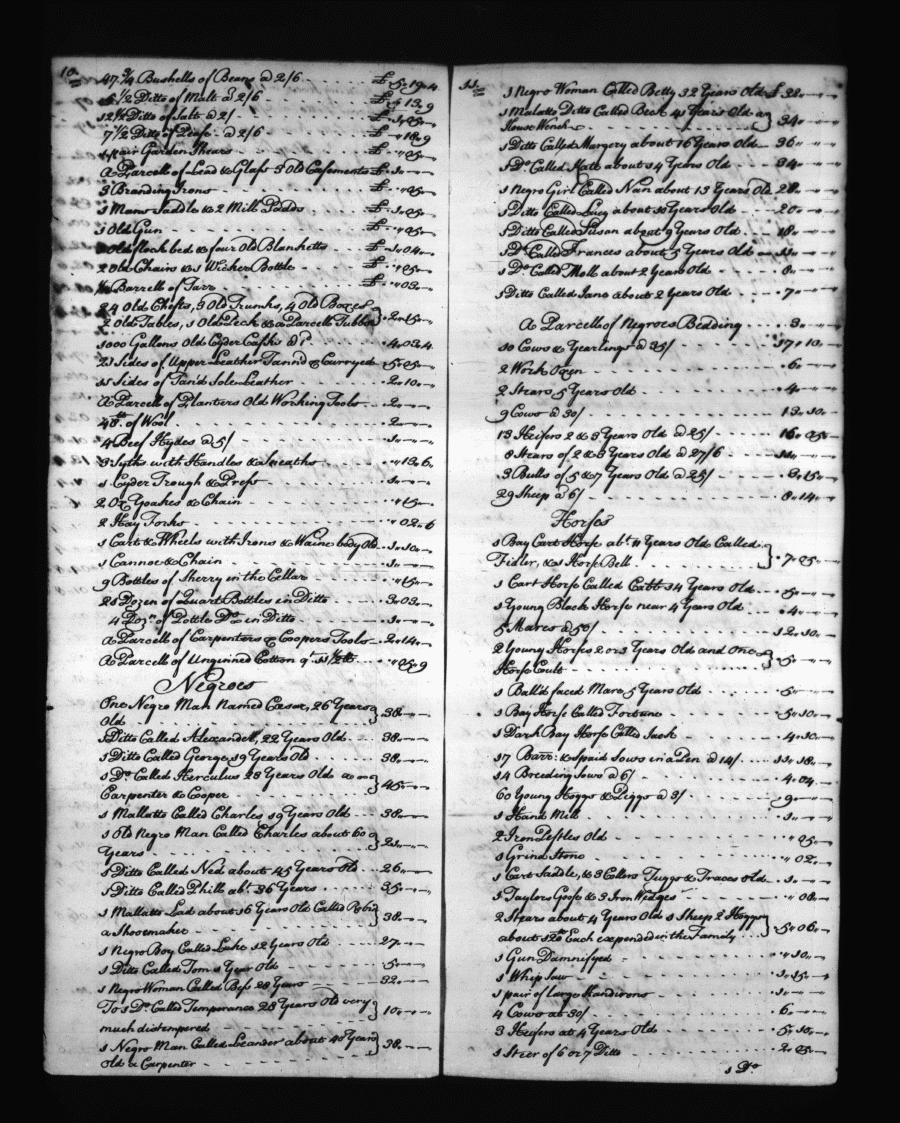 10.
47 3/4 Bushells of Beans @ 2/6 - - - £ 5,19,4
5 1/2 Ditto of Malt @ 2/6 - - - £ " 13,9
12 1/2 Ditto of Salt @ 2/ - - - £ 1,05,-
7 1/2 Ditto of Pease @ 2/6 - - - £ " 18,9
1 pair Garden Shears - - - £ " 05,-
A Parcell of Lead & Glass 3 Old Casements £ 1,-
3 Branding Irons - - - £ " 05,-
1 Mans Saddle & 2 Mill Padds - - £ 1,05,-
1 Old Gun - - - £ " 05,-
Old flock bed & four Old Blanketts - - £ 1,04,-
2 Old Chains & 1 Wicker Bottle - - £ " 05,-
Barrell of Tarr - - - £ " 03,-
24 Old Chests, 3 Old Trunks, 4 Old Boxes
2 Old Tables, 1 Old Desk & a Parcell Tubbs } 2,15,-
1000 Gallons Old Cyder Casks @ 1d - - 4,03,4
21 Sides of Upper-Leather Tann'd & Curryed - 5,05,-
15 Sides of Tan'd Sole-Leather - - 2,10,-
A Parcell of Planters Old Working Tools - - 2,-
40lb. of Wool - - - 2,-
4 Beef Hydes @ 5/ - - - 1,-
3 Syths with Handles & Sneaths - - " 13,6
1 Cyder Trough & Press - - - 1,-
2 Ox Yoakes & Chain - - - " 15,-
2 Hay Forks - - - " 02,6
1 Cart & Wheels with Irons & Waine body Old - 1,10,-
1 Cannoe & Chain - - - 1,-
9 Bottles of Sherry in the Cellar - - " 15,-
21 Dozen of Quart Bottles in Ditto - - 3,03,-
4 Dozn. of Pottle Do. in Ditto - - 1,-
A Parcell of Carpenters & Coopers Tools - 2,14,-
A Parcell of Unginned Cotton qt. 11 1/2 lb - - " 05,9
Negroes
One Negro Man Named Cæsar, 26 Years
Old } 38,-
1 Ditto Called Alexander, 22 Years Old - - 38,-
1 Ditto Called George 19 Years Old - - 38,-
1 Do. Called Herculus 28 Years Old a
Carpenter & Cooper } 45,-
1 Mallatto Called Charles 19 Years Old - - 38,-
1 Old Negro Man Called Charles about 60
Years - - } 21,-
1 Ditto Called Ned about 45 Years old - - 26,-
1 Ditto Called Phill abt. 36 Years - - 35,-
1 Mallatto Lad about 16 Years Old Called Robin
a Shoemaker - - } 38,-
1 Negro Boy Called Luke 12 Years Old - - 27,-
1 Ditto Called Tom 1 Year Old - - 5,-
1 Negro Woman Called Bess 28 Years - - 32,-
To 1 Do. Called Temperance 28 Years Old very
much distempered - - } 10,-
1 Negro Man Called Leander about 40 Years
old a Carpenter - - } 38,-
11.
1 Negro Woman Called Betty 32 Years Old £ 32,-
1 Malatto Ditto Called Beck 41 Years Old a
House Wench - - } 34,-
1 Ditto Called Margery about 16 Years Old - 36,-
1 Do. Called Kate about 14 Years Old - - 34,-
1 Negro Girl Called Nan about 13 Years Old 28,-
1 Ditto Called Lucy about 10 Years Old - - 20,-
1 Ditto Called Susan about 9 Years Old - - 18,-
1 Do. Called Frances about 5 Years Old - 11,-
1 Do. Called Moll about 2 Years Old - - 8,-
1 Ditto Called Jane about 2 Years Old - - 7,-
A Parcell of Negroes Bedding - - 3,-
10 Cows & Yearlings @ 35/ - - 17,10,-
2 Work Oxen - - 6,-
2 Stears 5 Years Old - - 4,-
9 Cows @ 30/ - - 13,10,-
13 Heifers 2 & 3 Years Old @ 25/ - - 16,05,-
8 Stears of 2 & 3 Years Old @ 27/6 - - 11,-
3 Bulls of 5 & 7 Years Old @ 25/ - - 3,15,-
29 Sheep @ 6/ - - 8,14,-
Horses
1 Bay Cart Horse abt. 11 Years Old Called
Fidler, & 1 Horse Bell - - } 7,05,-
1 Cart Horse Called 14 Years Old - - 5,-
1 Young Black Horse near 4 Years Old - - 4,-
5 Mares @ 50/ - - 12,10,-
2 Young Horses 2 or 3 Years Old and One
Horse Coult - - } 5,-
1 Ball'd faced Mare 5 Years Old - - 5,-
1 Bay Horse Called Fortune - - 5,10,-
1 Dark Bay Horse Called Jack - - 4,10,-
17 Barr: & Spaid Sows in a Pen @ 14/ - - 11,18,-
14 Breeding Sows @ 6/ - - 4,04,-
60 Young Hoggs & Piggs @ 3/ - - 9,-
1 Hand Mill - - 1,-
2 Iron Pestles Old - - " 05,-
1 Grind Stone - - " 02,-
1 Cart Saddle, & 3 Collers Tuggs & Traces old - 1,-
1 Taylors Goose & 3 Iron Wedges - - " 08,-
2 Stears about 4 Years Old 1 Sheep 2 Hoggs
about 120lb Each expended in the Family } 5,06,-
1 Gun Damnifyed - - " 10,-
1 Whip Saw - - 1,15,-
1 pair of large Handirons - - 1,-
4 Cows at 30/ - - 6,-
3 Heifers at 4 Years Old - - 5,10,-
1 Steer of 6 or 7 Ditto - - 2,05,-
1 Do.